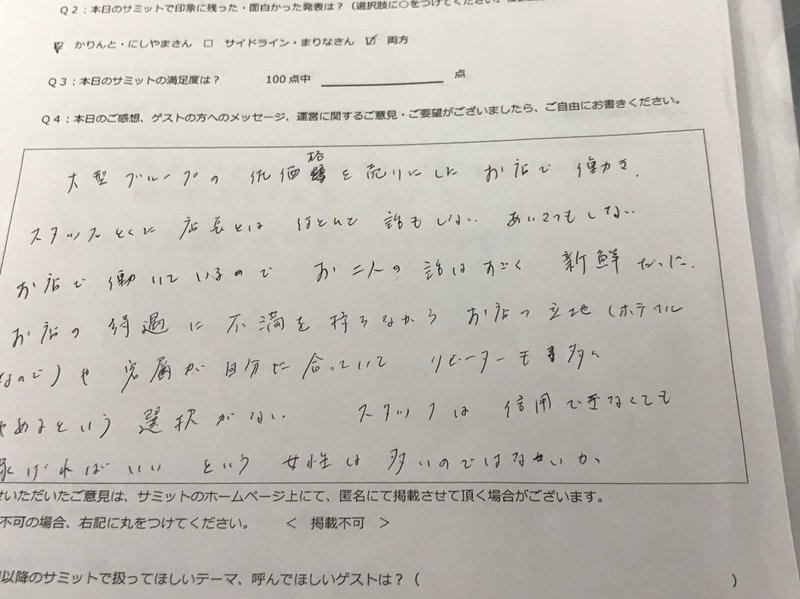 Q2：本日のサミットで印象に残った・面白かった発表は？（選択肢に○をつけてください。
☑ かりんと・にしやまさん □ サイドライン・まりなさん ☑ 両方
Q3：本日のサミットの満足度は？ 100点中 点
Q4：本日のご感想、ゲストの方へのメッセージ、運営に関するご意見・ご要望がございましたら、ご自由にお書きください。
大型グループの低価格を売りにしたお店で働き、
スタッフとくに店長とはほとんど話もしない あいさつもしない
お店で働いているので お二人の話はすごく 新鮮だった。
お店の待遇に不満を持ちながら お店の立地（ホテル
なので）や客層が自分に合っていて リピーターも多く
やめるという選択がない スタッフは信用できなくても
稼げればいい という女性は多いのではないか、
せいただいたご意見は、サミットのホームページ上にて、匿名にて掲載させて頂く場合がございます。
不可の場合、右記に丸をつけてください。 ＜ 掲載不可 ＞
以降のサミットで扱ってほしいテーマ、呼んでほしいゲストは？（ ）